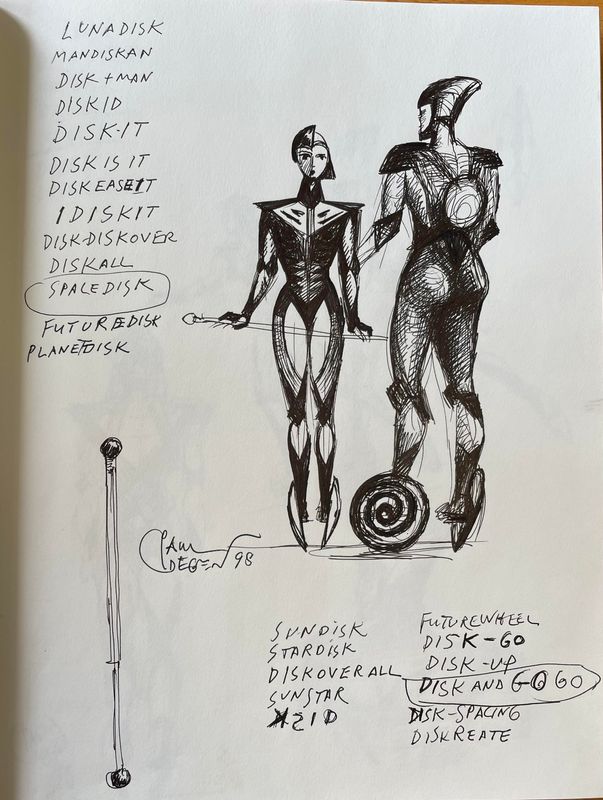 LUNADISK
MANDISKAN
DISK+MAN
DISKID
DISK-IT
DISK IS IT
DISKEASEIT
IDISKIT
DISK-DISKOVER
DISKALL
SPACEDISK
FUTUREDISK
PLANETDISK
PAUL
DEGEN 98
SUNDISK
STARDISK
DISKOVERALL
SUNSTAR
FUTUREWHEEL
DISK-GO
DISK-UP
DISK AND GO GO
DISK-SPACING
DISKREATE